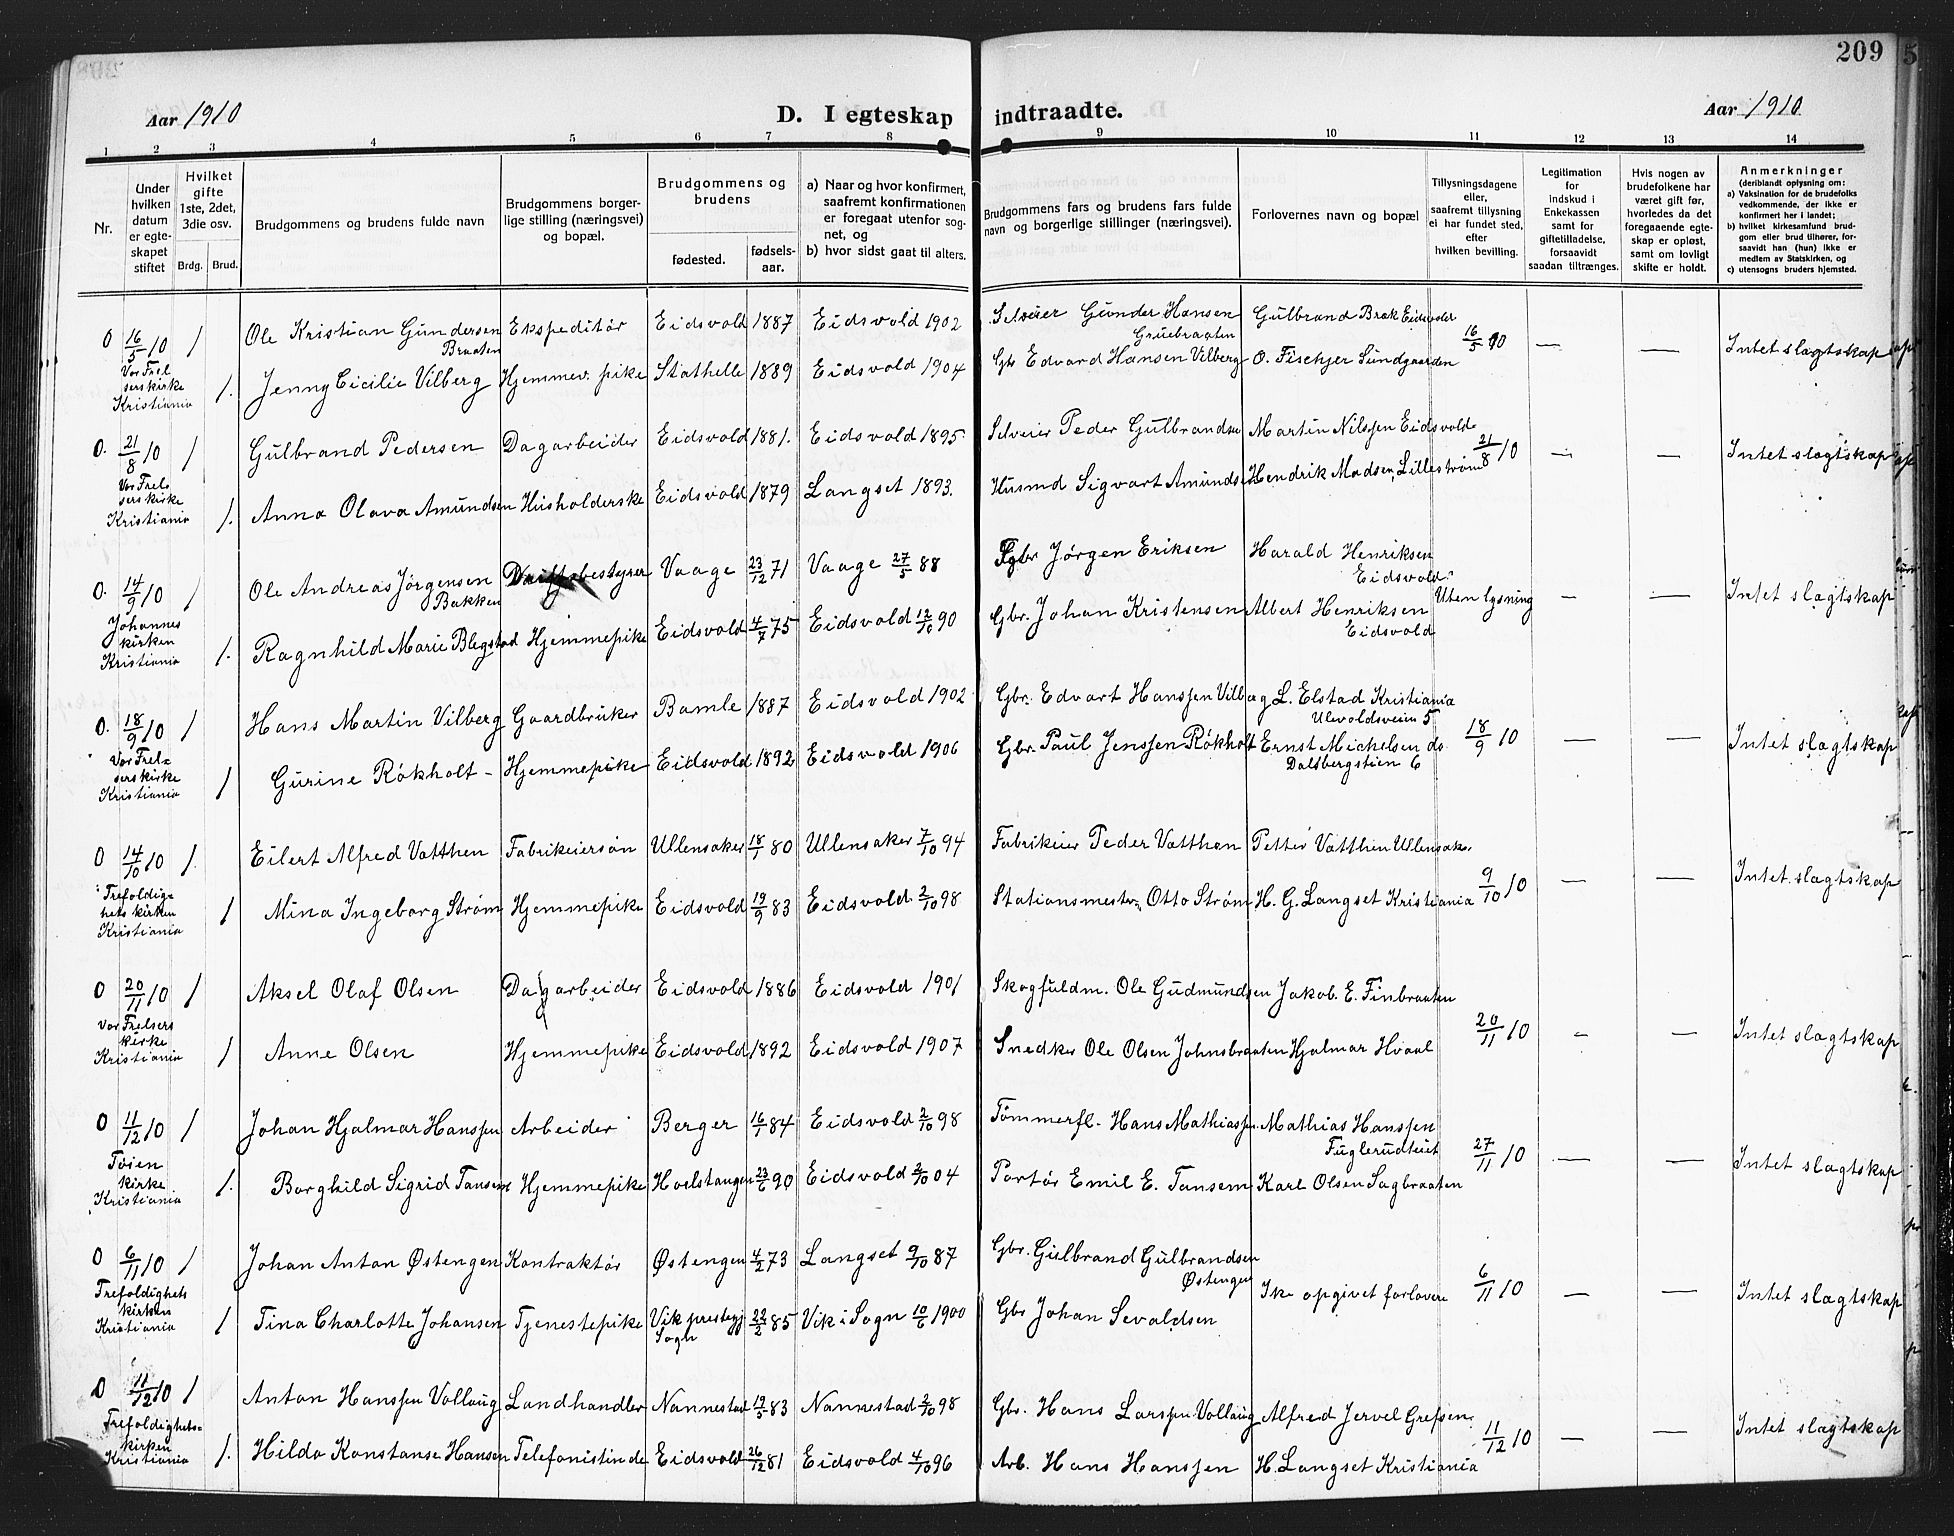 209
Aar 1910
D. I egteskap indtraadte.
Aar 1910
1 2 3 4 5 6 7 8 9 10 11 12 13 14
Nr.
Under hvilken datum er egteskapet stiftet
Hvilket gifte 1ste, 2det, 3die osv.
Brdg. Brud.
Brudgommens og brudens fulde navn
Brudgommens borgerlige stilling (næringsvei) og bopæl.
Brudgommens og brudens
fødested.
fødselsaar.
a) Naar og hvor konfirmert, saafremt konfirmationen er foregaat utenfor sognet, og
b) hvor sidst gaat til alters.
Brudgommens fars og brudens fars fulde navn og borgerlige stillinger (næringsvei).
Forlovernes navn og bopæl
Tillysningsdagene eller, saafremt tillysning ei har fundet sted, efter hvilken bevilling.
Legitimation for indskud i Enkekassen samt for giftetilladelse, forsaavidt saadan tiltrænges.
Hvis nogen av brudefolkene har været gift før, hvorledes da det foregaaende egteskap er opløst, samt om lovligt skifte er holdt.
Anmerkninger
(deriblandt oplysning om:
a) Vaksination for de brudefolks vedkommende, der ikke er konfirmert her i landet;
b) hvilket kirkesamfund brudgom eller brud tilhører, forsaavidt han (hun) ikke er medlem av Statskirken, og
c) utensogns bruders hjemsted.
0 16/5 10 1 Ole Kristian Gundersen Braaten Ekspeditør Eidsvold 1887 Eidsvold 1902 Selveier Gunder Hansen Gruebraaten Gulbrand Bræk Eidsvold 16/5 10 — — Intet slagtskap
Vor Frelserskirke Kristiania 1. Jenny Cicilie Vilberg Hjemmev. pike Stathelle 1889 Eidsvold 1904 Gbr Edvard Hansen Vilberg O. Fischjer Sundgaarden
0. 21/8 10 1 Gulbrand Pedersen Dagarbeider Eidsvold 1881. Eidsvold 1895. Selveier Peder Gulbrandsen Martin Nilssen Eidsvold 21/8 10 — — Intet slagtskap
Vor Frelserskirke Kristiania 1. Anna Olava Amundsen Husholderske Eidsvold 1879 Langset 1893. Husmd Sigvart Amundsen Hendrik Madsen, Lillestrøm
0. 14/9 10 1 Ole Andreas Jørgensen Bakken Driftsbestyrer Vaage 23/12 71 Vaage 27/5 88 Gbr Jørgen Eriksen Harald Henriksen Eidsvold Uten lysning — — Intet slagtskap
Johannes kirken Kristiania 1. Ragnhild Marie Blegstad Hjemmepike Eidsvold 4/7 75 Eidsvold 12/10 90 Gbr. Johan Kristensen Albert Henriksen Eidsvold
0. 18/9 10 1 Hans Martin Vilberg Gaardbruker Bamle 1887 Eidsvold 1902 Gbr. Edvart Hanssen Vilberg L. Elstad Kristiania Ulevoldsveien 5 18/9 10 — — Intet slagtskap
Vor Frelserskirke Kristiania 1 Gurine Røkholt - Hjemmepike Eidsvold 1892 Eidsvold 1906 Gbr. Paul Jenssen Røkholt Ernst Michelsen do. Dalsbergstien 6
0 14/10 10 1. Eilert Alfred Vatthen Fabrikeiersøn Ullensaker 18/1 80 Ullensaker 7/10 94 Fabrikeier Peder Vatthen Petter Vatthen Ullensaker 9/10 10 — — Intet slagtskap
Trefoldighets kirken Kristiania 1 Mina Ingeborg Strøm Hjemmepike Eidsvold 19/9 83 Eidsvold 2/10 98 Stationsmester Otto Strøm H. G. Langset Kristiania
0 20/11 10 1 Aksel Olaf Olsen Dagarbeider Eidsvold 1886 Eidsvold 1901 Skogfuldm. Ole Gudmundsen Jakob. E. Finbraaten 20/11 10 — — Intet slagtskap
Vor Frelsers kirke Kristiania 1 Anne Olsen Hjemmepike Eidsvold 1892 Eidsvold 1907 Snedker Ole Olsen Johnsbraaten Hjalmar Hvaal
0 11/12 10 1 Johan Hjalmar Hanssen Arbeider Berger 16/1 84 Eidsvold 2/10 98 Tømmerfl. Hans Mathiassen Mathias Hanssen Fuglerudteiet 27/11 10 — — Intet slagtskap
Tøien kirke Kristiania 1. Borghild Sigrid Tansem Hjemmepike Hoelstangen 23/6 90 Eidsvold 2/10 04 Portør Emil E. Tansem Karl Olsen Sagbraaten
0 6/11 10 1 Johan Anton Østengen Kontraktør Østengen 4/2 73 Langset 9/10 87 Gbr. Gulbrand Gulbrandsen Østengen Ike opgivet forlovere 6/11 10 — — Intet slagtskap
Trefoldighets kirken Kristiania 1 Tina Charlotte Johansen Tjenestepike Vik prestegj Sogn 22/2 85 Vik i Sogn 10/6 1900 Gbr Johan Sevaldsen
0 11/12 10 1 Anton Hanssen Vollaug Landhandler Nannestad 19/5 83 Nannestad 2/10 98 Gbr. Hans Larssen Vollaug Alfred Jervel Grefsen. 11/12 10 — — Intet slagtskap
Trefoldighets-kirken Kristiania 1. Hilda Konstanse Hansen Telefonistinde Eidsvold 26/12 81 Eidsvold 4/10 96 Arb. Hans Hanssen H. Langset Kristiania